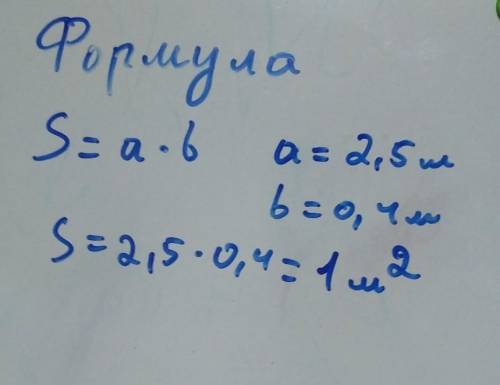 Формула
S = a · b a = 2,5 м
b = 0,4 м
S = 2,5 · 0,4 = 1 м²